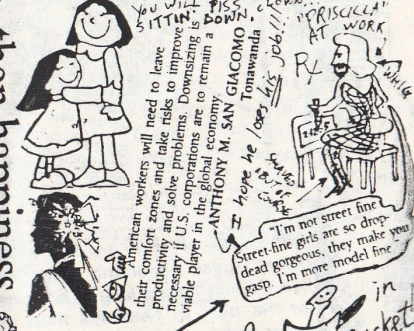 YOU WILL PISS
SITTIN' DOWN, CLOWN...
"PRISCILLA"
AT WORK
WHIG
American workers will need to leave
their comfort zones and take risks to improve
productivity and solve problems. Downsizing is
necessary if U.S. corporations are to remain a
viable player in the global economy.
ANTHONY M. SAN GIACOMO
Tonawanda
I hope he loses his job!!!
"I'm not street fine.
Street-fine girls are so drop-
dead gorgeous, they make you
gasp. I'm more model fine."
then happiness
in